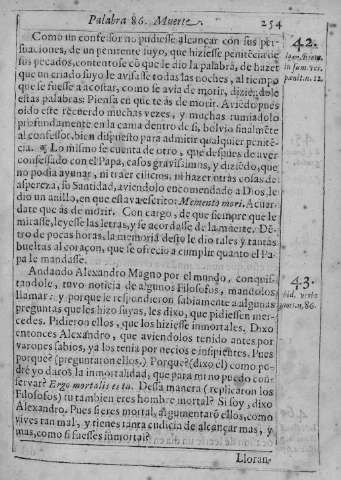 Palabra 86. Muerte. 254
Como un confessor no pudiesse alcançar con sus per-
suaciones, de un penitente suyo, que hiziesse penitẽcia de
sus pecados, contentose cõ que le dio la palabra, de hazer
que un criado suyo le avisasse todas las noches, al tiempo
que se fuesse a acostar, como se avia de morir, diziẽdole
estas palabras: Piensa en que teás de morir. Aviẽdo pues
oido este recuerdo muchas vezes, y muchas rumiadolo
profundamente en la cama dentro de si, bolvio finalmẽte
al confessor, bien dispuesto para admitir qualquier penitẽ-
cia. Lo mismo se cuenta de otro, que despues de aver
confessado con el Papa, casos gravissimos, y diziẽdo, que
no podia ayunar, ni traer cilicios, ni hazer otras cosas de
aspereza, su Santidad, aviendolo encomendado a Dios, le
dio un anillo, en que estava escrito: Memento mori. Acuer-
date que ás de morir. Con cargo, de que siempre que le
mirasse, leyesse las letras, y se acordasse de la muerte. Dẽ-
tro de pocas horas, la memoria desto le dio tales y tantas
bueltas al coraçon, que se ofrecio a cumplir quanto el Pa-
pa le mandasse.
Andando Alexandro Magno por el mundo, conquis-
tandole, tuvo noticia de algunos Filosofos, mandolos
llamar: y porque le respondieron sabiamente a algunas
preguntas que les hizo suyas, les dixo, que pidiessen mer-
cedes. Pidieron ellos, que los hiziesse inmortales. Dixo
entonces Alexandro, que aviendolos tenido antes por
varones sabios, ya los tenia por necios e insipientes. Pues
porque? (preguntaron ellos.) Porque? (dixo el) como po-
drè yo daros la inmortalidad, que para mi no puedo con-
servar? Ergo mortalis es tu. Dessa manera (replicaron los
Filosofos) tu tambien eres hombre mortal? Si soy, dixo
Alexandro. Pues si eres mortal, argumentarõ ellos, como
vives tan mal, y tienes tanta cudicia de alcançar mas, y
mas, como si fuesses inmortal?
Lloran-
42.
in sum. ver.
pœnit. n. 12.
43.
86.